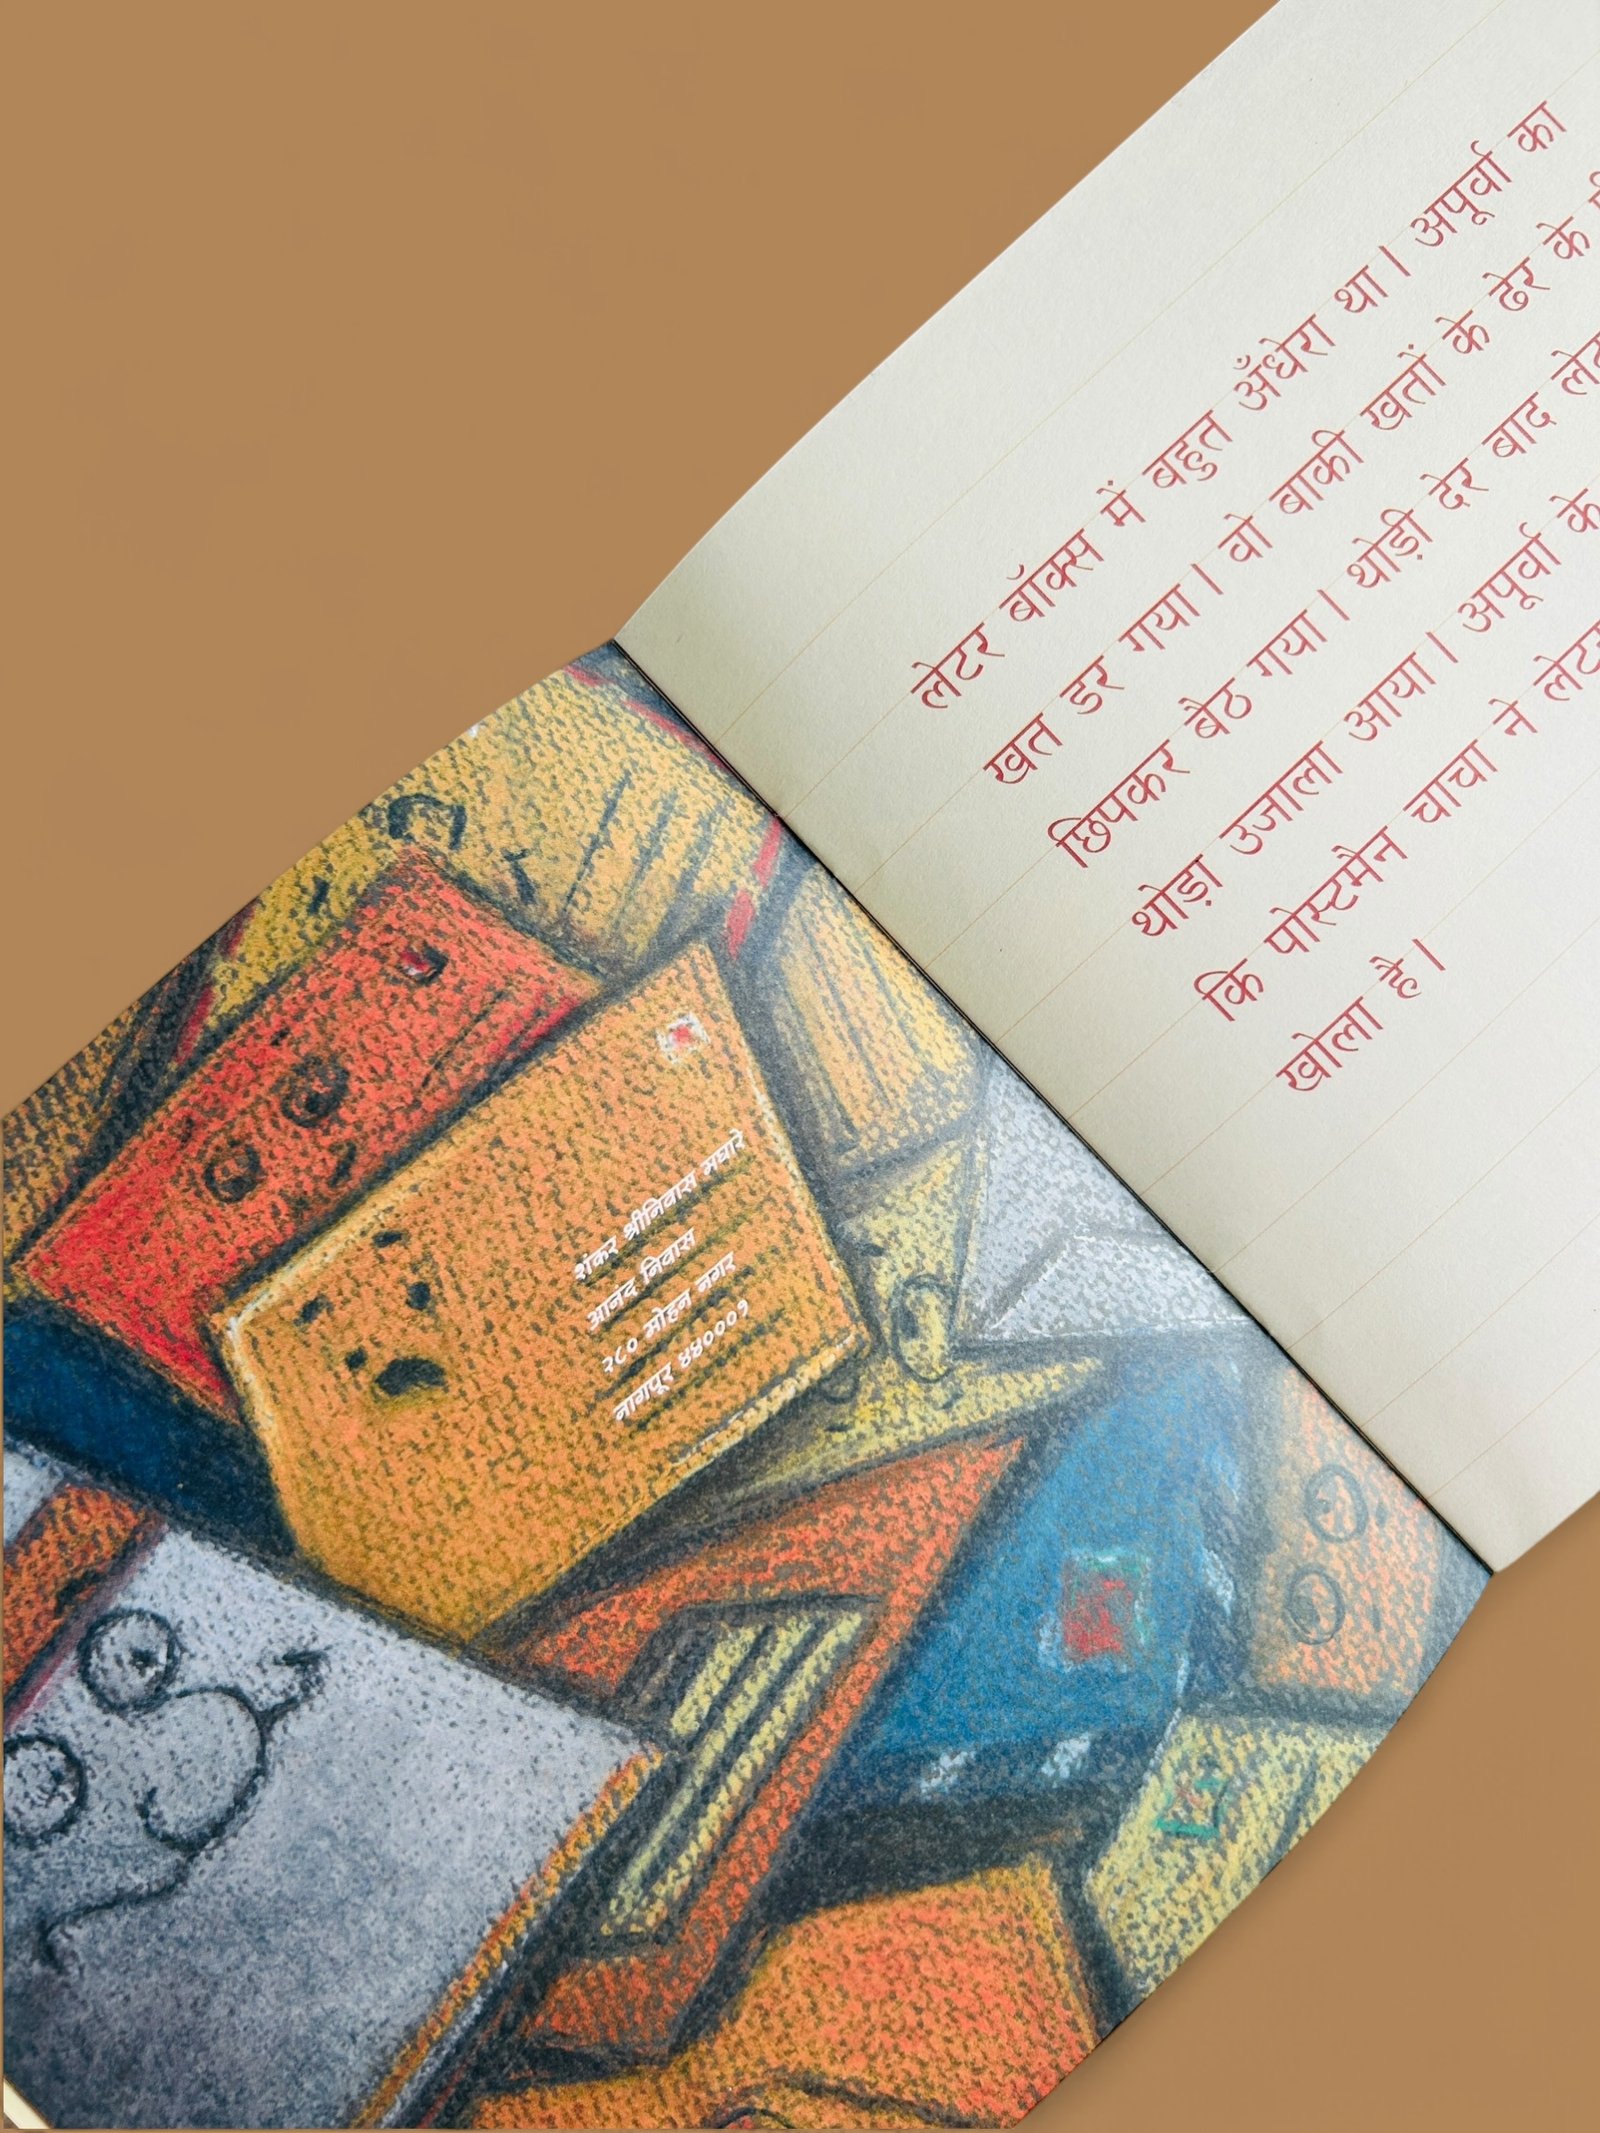 शंकर श्रीनिवास मघारे
आनंद निवास
२८० मोहन नगर
नागपूर ४४०००१
लेटर बॉक्स में बहुत अँधेरा था। अपूर्वा का
खत डर गया। वो बाकी खतों के ढेर के
छिपकर बैठ गया। थोड़ी देर बाद
थोड़ा उजाला आया। अपूर्वा के
कि पोस्टमैन चाचा ने
खोला है।